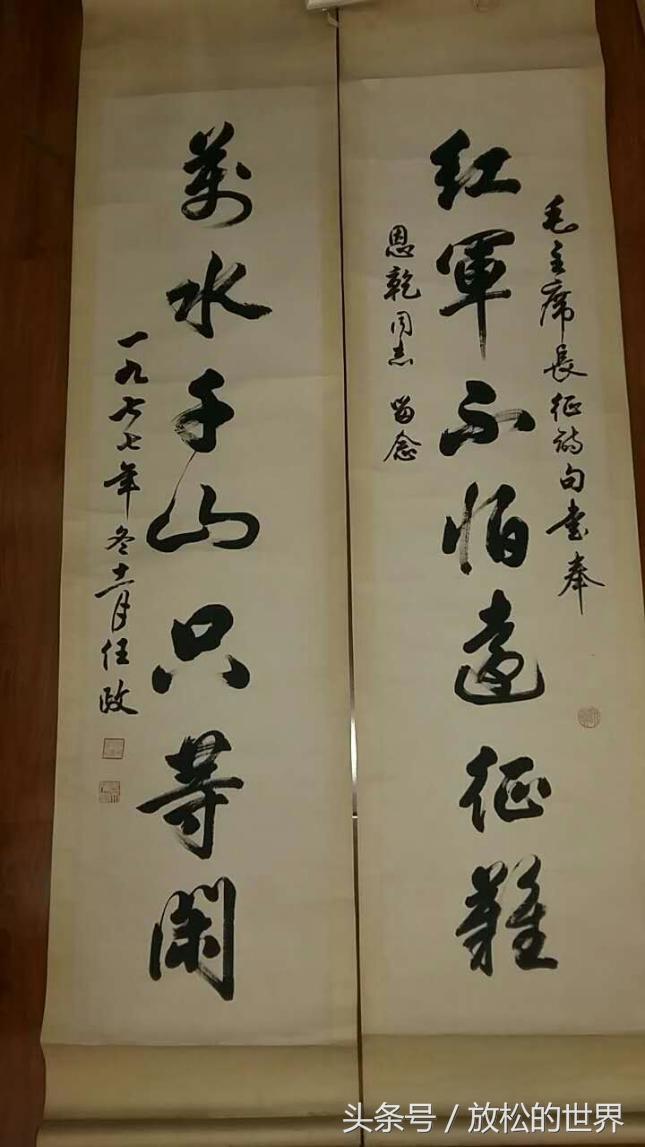 毛主席長征詩句書奉
紅軍不怕遠征難
恩乾同志 留念
萬水千山只等閑
一九七七年冬十一月任政
头条号 / 放松的世界